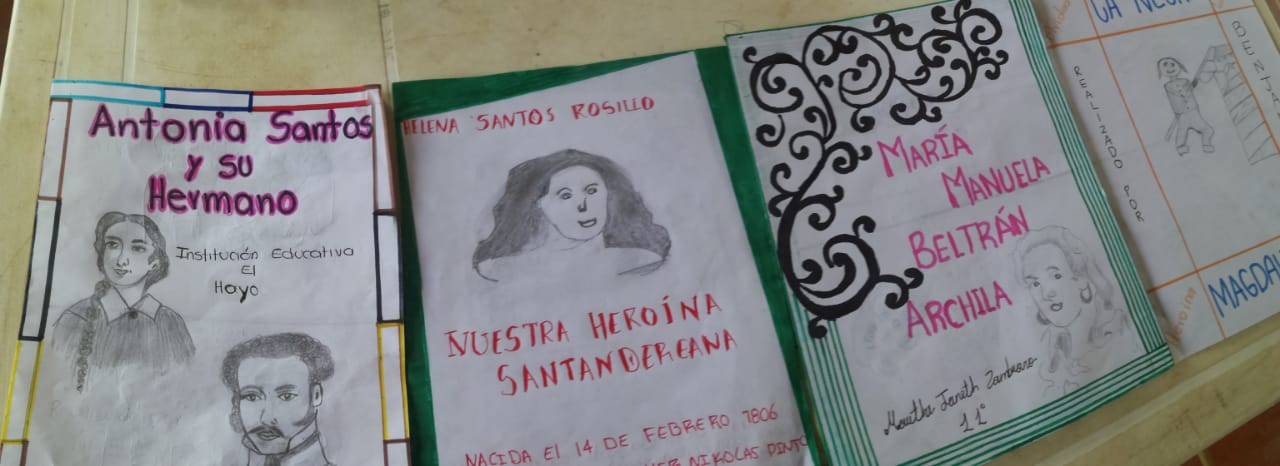 Antonia Santos
y su
Hermano
Institución Educativa
El
Hoyo
HELENA SANTOS ROSILLO
NUESTRA HEROÍNA
SANTANDEREANA
NACIDA El 14 DE FEBRERO 1806
NIKOLAS PINTO
MARÍA
MANUELA
BELTRÁN
ARCHILA
Janeth Zambrano
11°
REALIZADO POR